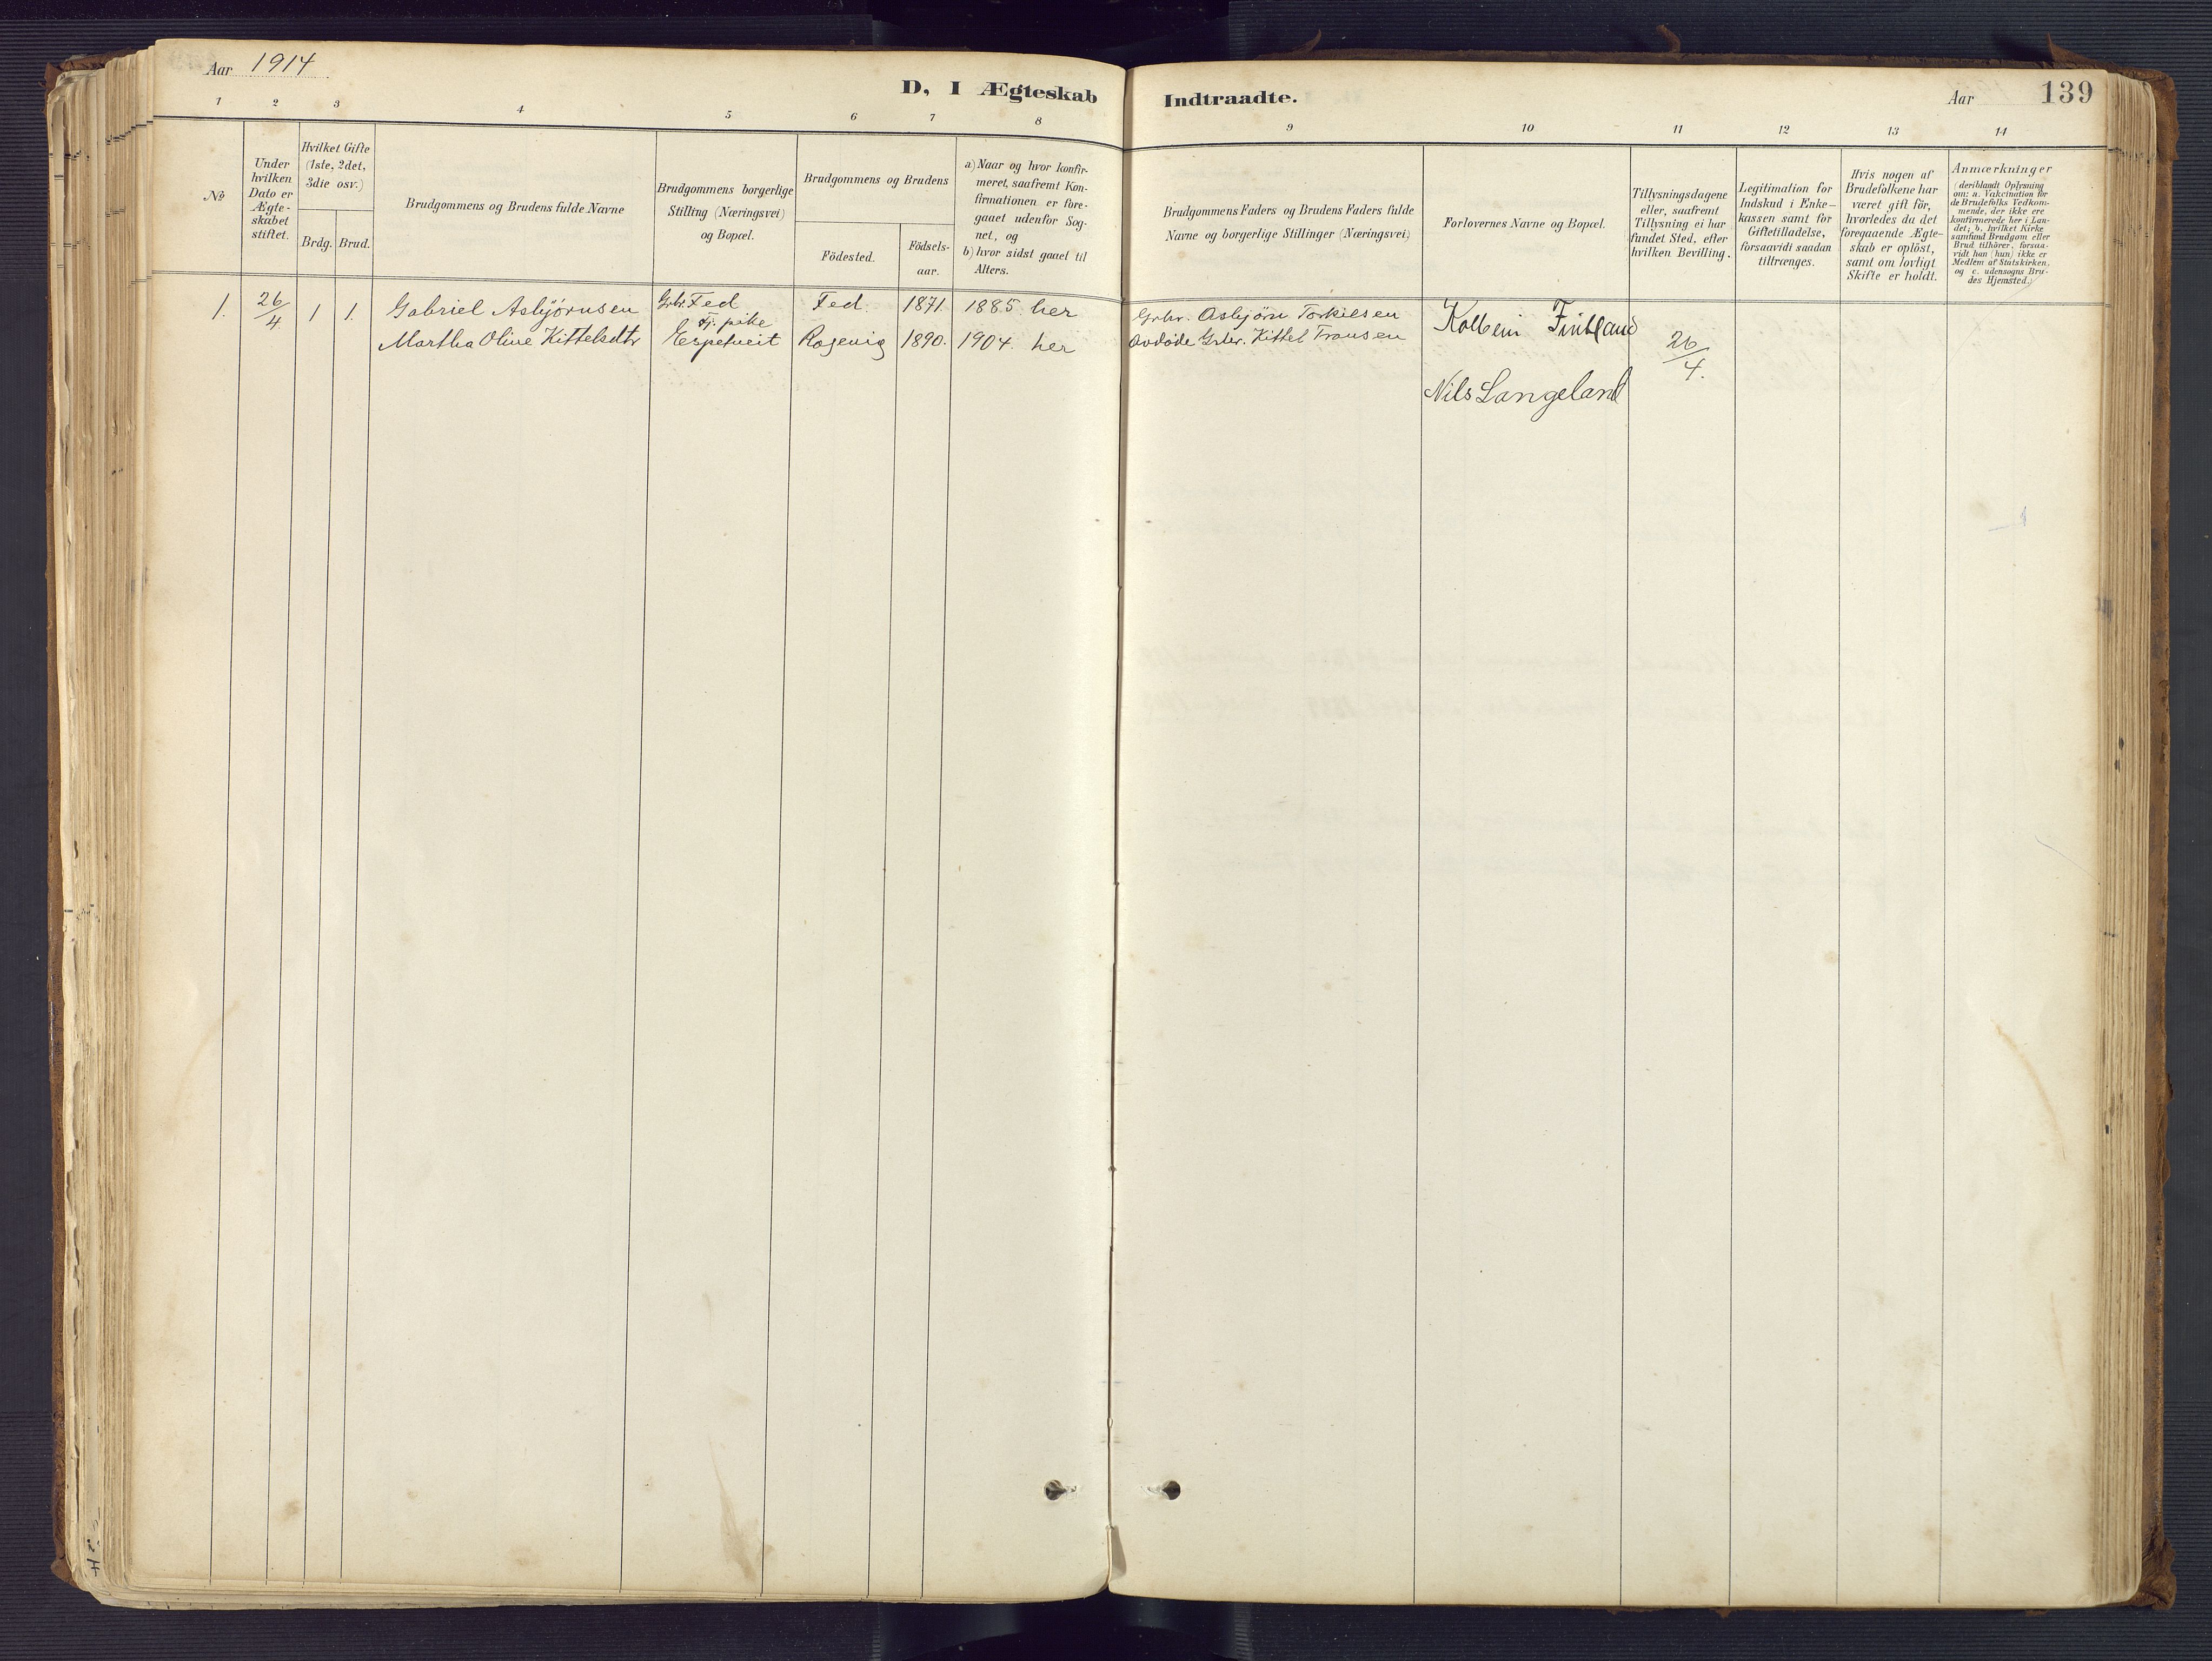 Aar 1914
D, I Ægteskab Indtraadte.
Aar
139
1 2 3 4 5 6 7 8 9 10 11 12 13 14
No
Under
hvilken
Dato er
Ægte-
skabet
stiftet.
Hvilket Gifte
(1ste, 2det,
3die osv.)
Brdg. Brud.
Brudgommens og Brudens fulde Navne
Brudgommens borgerlige
Stilling (Næringsvei)
og Bopæl.
Brudgommens og Brudens
Födested.
Födsels-
aar.
a) Naar og hvor konfir-
meret, saafremt Kon-
firmationen er fore-
gaaet udenfor Sog-
net, og
b) hvor sidst gaaet til
Alters.
Brudgommens Faders og Brudens Faders fulde
Navne og borgerlige Stillinger (Næringsvei.)
Forlovernes Navne og Bopæl.
Tillysningsdagene
eller, saafremt
Tillysning ei har
fundet Sted, efter
hvilken Bevilling.
Legitimation for
Indskud i Enke-
kassen samt for
Giftetilladelse,
forsaavidt saadan
tiltrænges.
Hvis nogen af
Brudefolkene har
været gift för,
hvorledes da det
foregaaende Ægte-
skab er oplöst,
samt om lovligt
Skifte er holdt.
Anmærkninger
(deriblandt Oplysning
om: a. Vakcination for
de Brudefolks Vedkom-
mende, der ikke ere
konfirmerede her i Lan-
det; b. hvilket Kirke
samfund Brudgom eller
Brud tilhörer, forsaa-
vidt han (hun) ikke er
Medlem af Statskirken,
og c. udensogns Bru-
des Hjemsted.)
1. 26/4 1 1. Gabriel Asbjørnsen Grbr. Fed Fed. 1871. 1885. her Grbr. Asbjørn Torkilsen
Tj. pike
Martha Oline Kittelsdtr Espetveit Rosevig 1890. 1904. her Avdøde Grbr. Kittel Fransen
Kolbein Fintland
26/4.
Nils Langeland